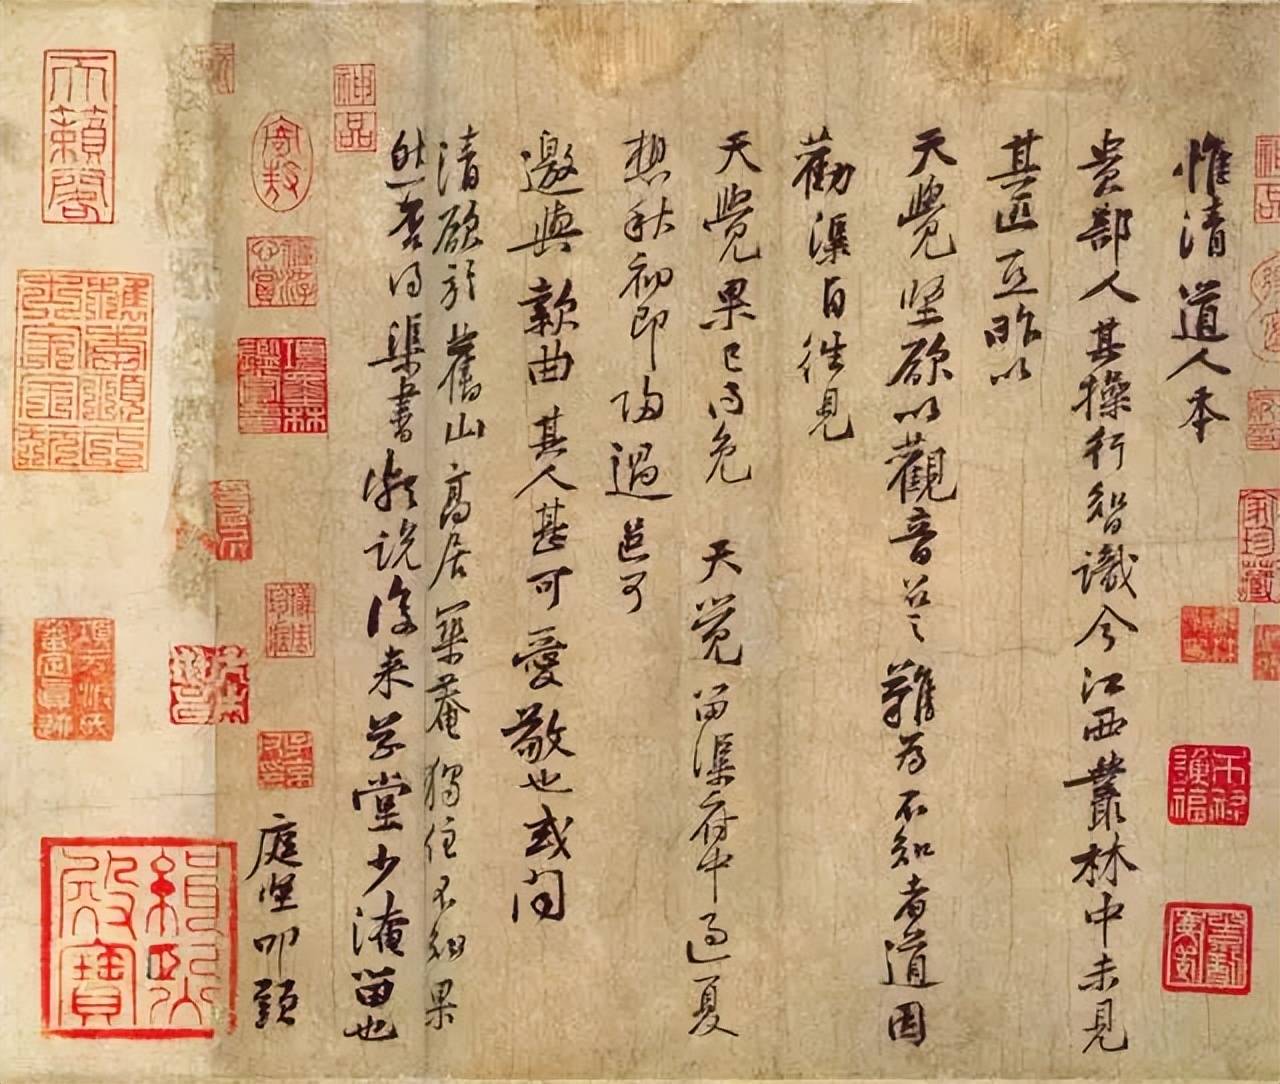 惟清道人本
貴部人其操行智識今江西叢林中未見
其匹亞昨以
天覺堅欲以觀音召之難為不知者道因
勸渠自往見
天覺果已得免 天覺留渠府中過夏
想秋初即歸過邑可
邀與款曲其人甚可愛敬也或聞
清欲於舊山高居築菴獨住不知果
然否得渠書頗說後來草堂少淹留也
庭堅叩頭
神品
寄敖
項墨林鑑賞章
天籟閣
緝熙殿寶